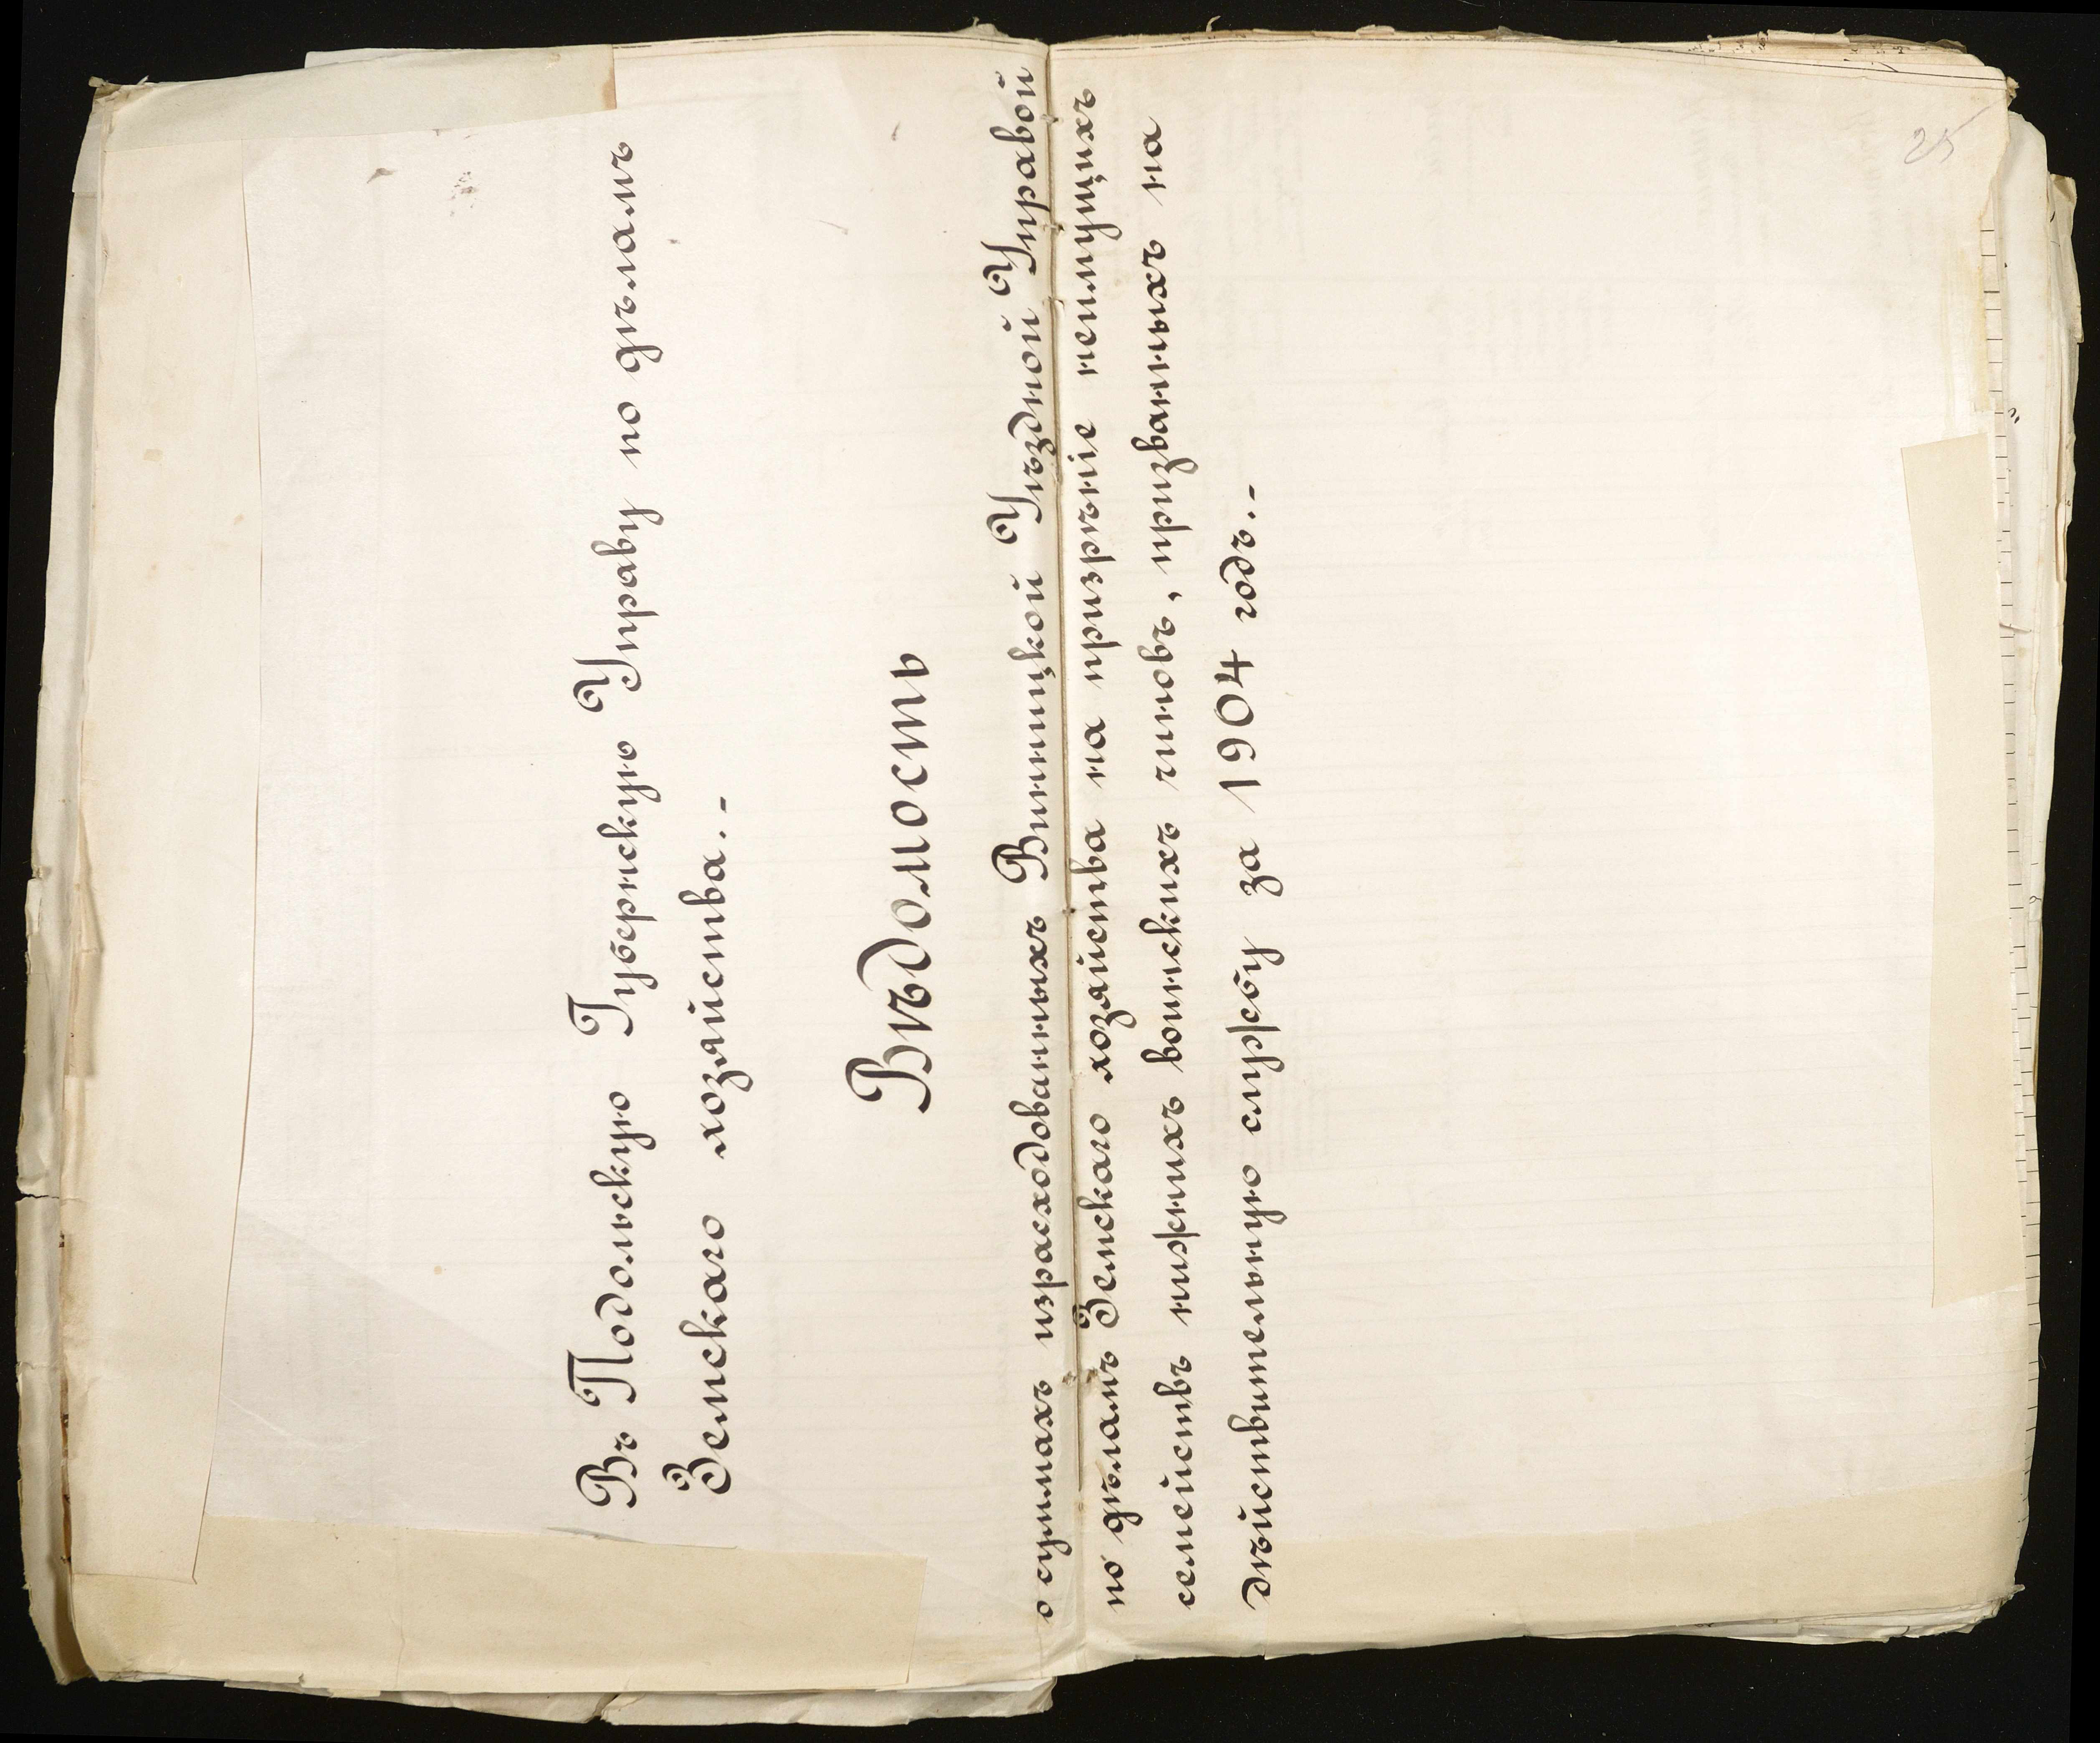 Въ Подольскую Губернскую Управу по дѣламъ
Земскаго хозяйства.-
Вѣдомость
о суммахъ израсходованныхъ Винницкой Уѣздной Управой
по дѣламъ Земскаго хозяйства на призрѣніе неимущихъ
семействъ нижнихъ воинскихъ чиновъ, призванныхъ на
дѣйствительную службу за 1904 годъ.-
25